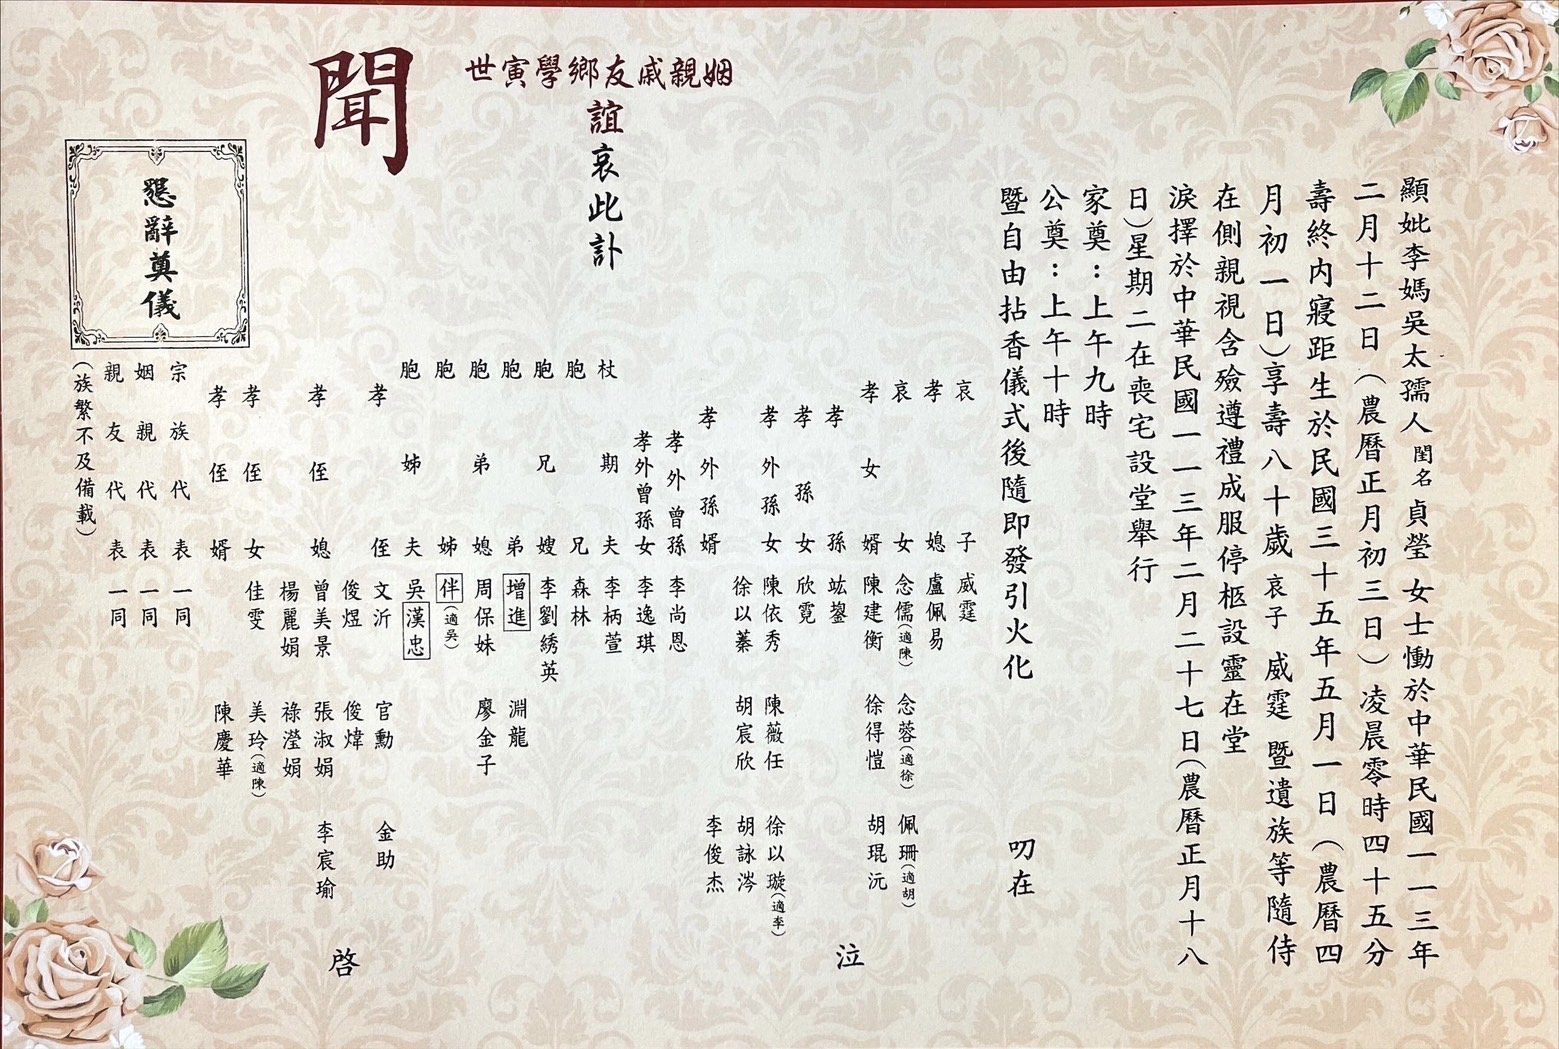 顯妣李媽吳太孺人閨名貞瑩 女士慟於中華民國一一三年
二月十二日（農曆正月初三日）凌晨零時四十五分
壽終內寢距生於民國三十五年五月一日（農曆四
月初一日）享壽八十歲 哀子 威霆 暨遺族等隨侍
在側親視含殮遵禮成服停柩設靈在堂
淚擇於中華民國一一三年二月二十七日(農曆正月十八
日)星期二在喪宅設堂舉行
家奠：上午九時
公奠：上午十時
暨自由拈香儀式後隨即發引火化 叨在
姻親戚友鄉學寅世
誼哀此訃
聞
哀子 威霆
孝媳 盧佩易
哀女 念儒(適陳) 念蓉(適徐) 佩珊(適胡)
孝女婿 陳建衡 徐得愷 胡琨沅
孝孫 竑鋆
孝孫女 欣霓
孝外孫女 陳依秀 陳薇任 徐以璇(適李)
徐以蓁 胡宸欣 胡詠涔
孝外孫婿 李俊杰
孝外曾孫 李尚恩
孝外曾孫女 李逸琪
杖期夫 李柄萱
胞兄 森林
胞兄嫂 李劉綉英
胞弟 增進 淵龍
胞弟媳 周保妹 廖金子
胞姊 伴(適吳)
胞姊夫 吳漢忠
孝侄 文沂 官勳 金助
俊煜 俊煒
孝侄媳 曾美景 張淑娟 李宸瑜
楊麗娟 祿瀅娟
孝侄女 佳雯 美玲(適陳)
孝侄婿 陳慶華
宗族代表一同
姻親代表一同
親友代表一同
(族繁不及備載)
泣
啓
懇辭奠儀